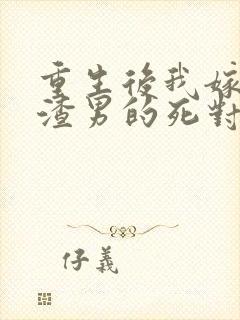 重生後我嫁
渣男的死對
仔義